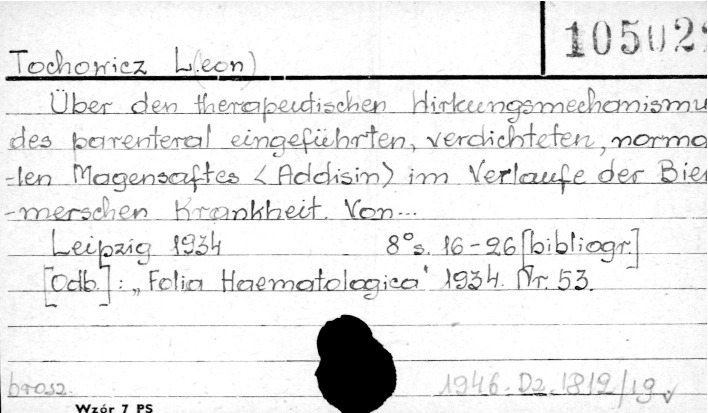 105029
Tochowicz L(eon)
Über den therapeutischen Wirkungsmechanismu
des parenteral eingeführten, verdichteten, norma
-len Magensaftes <Addisin> im Verlaufe der Bier
-merschen Krankheit. Von...
Leipzig 1934 8° s. 16-26 [bibliogr.]
[Odb.]: „Folia Haematologica" 1934. Nr. 53.
brosz. 1946. Dz. 1812/19 ✓
Wzór 7 PS